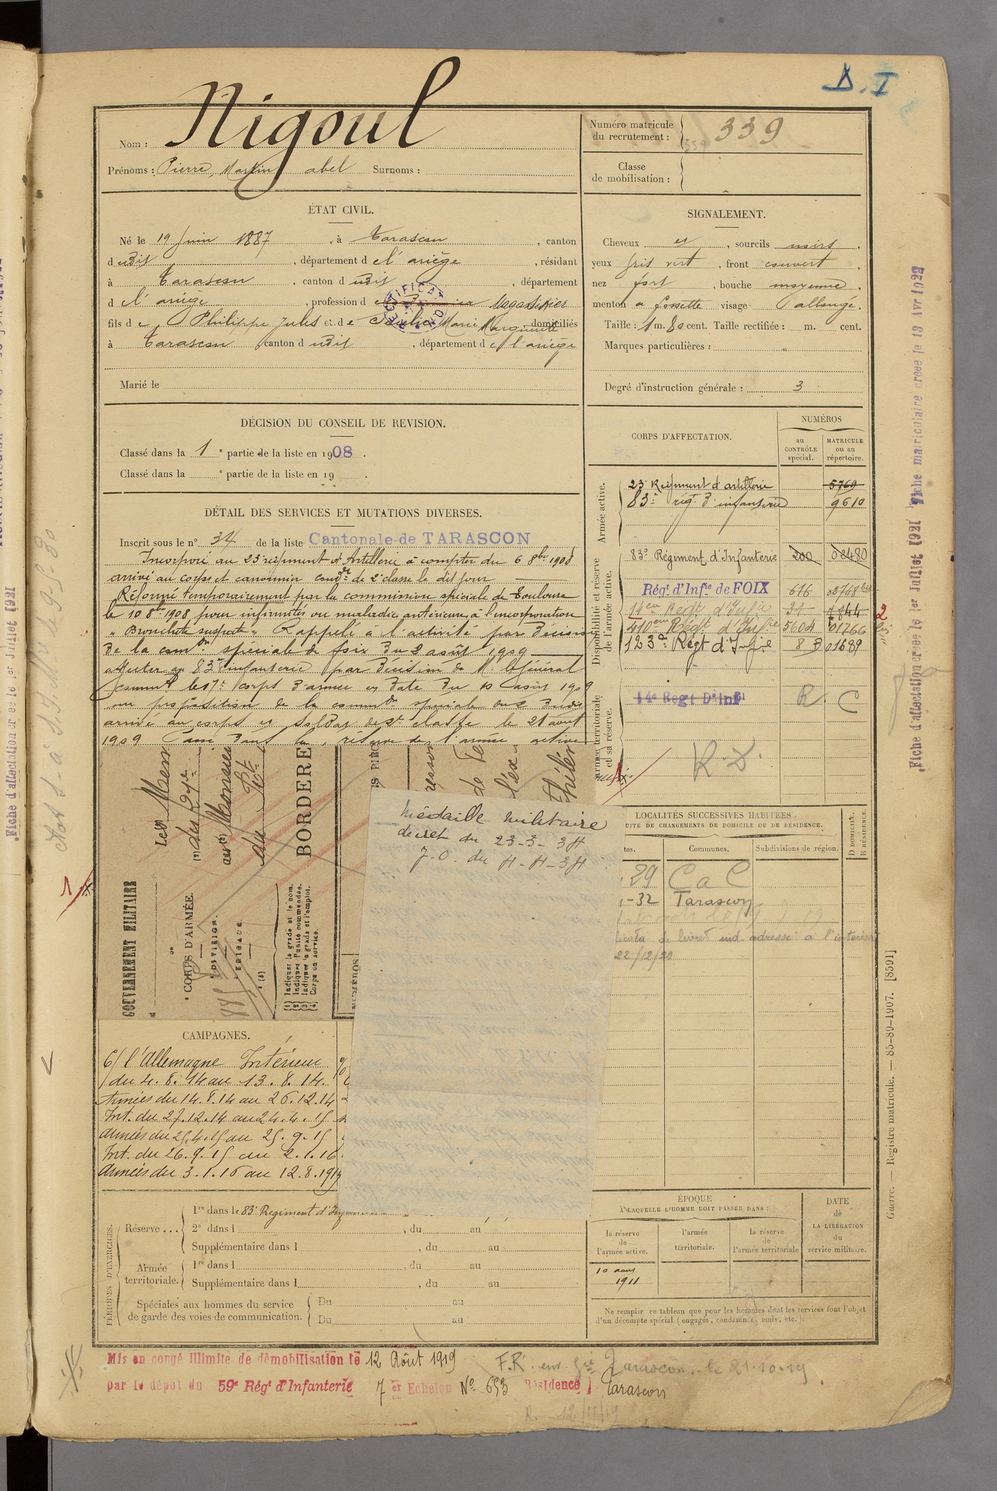 D. I
Nigoul
Nom :
Prénoms : Pierre, Martin abel Surnoms :
Numéro matricule du recrutement : 339
Classe de mobilisation :
ÉTAT CIVIL.
Né le 19 Juin 1887, à Tarascon, canton
dudit, département de l'ariège, résidant
à Tarascon, canton dudit, département
de l'ariège, profession d Magasinier
fils de Philippe Jules et de Marie Marguerite domiciliés
à Tarascon canton dudit, département de l'ariège
Marié le
SIGNALEMENT.
Cheveux et, sourcils noirs,
yeux gris vert, front couvert,
nez fort, bouche moyenne,
menton à fossette visage allongé.
Taille : 1 m. 80 cent. Taille rectifiée : m. cent.
Marques particulières :
Degré d'instruction générale : 3
DÉCISION DU CONSEIL DE REVISION.
Classé dans la 1e partie de la liste en 1908.
Classé dans la e partie de la liste en 19
DÉTAIL DES SERVICES ET MUTATIONS DIVERSES.
Inscrit sous le n° 34 de la liste Cantonale de TARASCON
Incorporé au 23e régiment d'Artillerie à compter du 6 8bre 1908
arrivé au corps et canonnier de 2e classe le dit jour
Réformé temporairement par la commission spéciale de Toulouse
le 10 8bre 1908 pour infirmités ou maladie antérieure à l'incorporation
"Bronchite suspecte" Rappelé à l'activité par décision
de la comon spéciale de foix du 2 août 1909
affecter au 83e infanterie par décision de M. le Général
Commt le 17e corps d'armée en date du 10 août 1909
sur proposition de la common spéciale sus
arrivé au corps et soldat de 2e classe le 21 août
1909 Passé dans la réserve de l'armée active
CORPS D'AFFECTATION.
NUMÉROS
au CONTRÔLE spécial.
MATRICULE ou au répertoire.
Armée active.
23e Régiment d'artillerie 5769
83e rég. d'infanterie 9610
Disponibilité et réserve de l'armée active.
83e Régiment d'Infanterie 200 02480
Rég. d'Infie de FOIX 616
14em Regt d'Infie 21 1844
410em Regt d'Infrie 5604 01766
123e Régt d'Infie 8 D 01689
Armée territoriale et sa réserve.
14e Regt D'Infie R. C
R.D.
GOUVERNEMENT MILITAIRE
e CORPS D'ARMÉE.
e DIVISION.
e BRIGADE.
BORDERE
(1) Indiquer le grade et le nom.
(4) Corps ou service.
Médaille Militaire
décret du 23-3-34
J.O. du 4-4-34
LOCALITÉS SUCCESSIVES HABITÉES
UITE DE CHANGEMENTS DE DOMICILE OU DE RÉSIDENCE.
Communes.
Subdivisions de région.
D DOMICILE. R RÉSIDENCE
29 C a C
-32 Tarascon
livret ind. adressé à l'intéressé
22/12/20
CAMPAGNES.
C/ l'Allemagne Intérieur
du 4.8.14 au 13.8.14.
Armées du 14.8.14 au 26.12.14
Int. du 27.12.14 au 24.4.15
Armées du 25.4.15 au 25.9.15
Int. du 26.9.15 au 2.1.16
Armées du 3.1.16 au 12.8.1919
PÉRIODES D'EXERCICES.
Réserve ...
1re dans le 83e Régiment d'Inf
2e dans l , du au
Supplémentaire dans l , du au
Armée territoriale.
1re dans l , du au
Supplémentaire dans l , du au
Spéciales aux hommes du service
de garde des voies de communication.
Du au
Du au
ÉPOQUE
À LAQUELLE L'HOMME DOIT PASSER DANS :
la réserve de l'armée active.
l'armée territoriale.
la réserve de l'armée territoriale
DATE DE LA LIBÉRATION du service militaire.
10 août 1911
Ne remplir ce tableau que pour les hommes dont les services font l'objet
d'un décompte spécial (engagés, condamnés, omis, etc.).
Mis en congé illimité de démobilisation le 12 Août 1919
par le dépôt du 59e Régt d'Infanterie 7e Echelon N° 653 Résidence Tarascon
F.R. env. Gie Tarascon, le 21.10.19
R. 12/11/19
Guerre. — Registre matricule. — 85-89-1907. [8591]
Fiche matriculaire créée le 19 Avr 1922
Fiche d'affectation créée le 1er Juillet 1921
Fiche d'affectation créée le 1er Juillet 1921